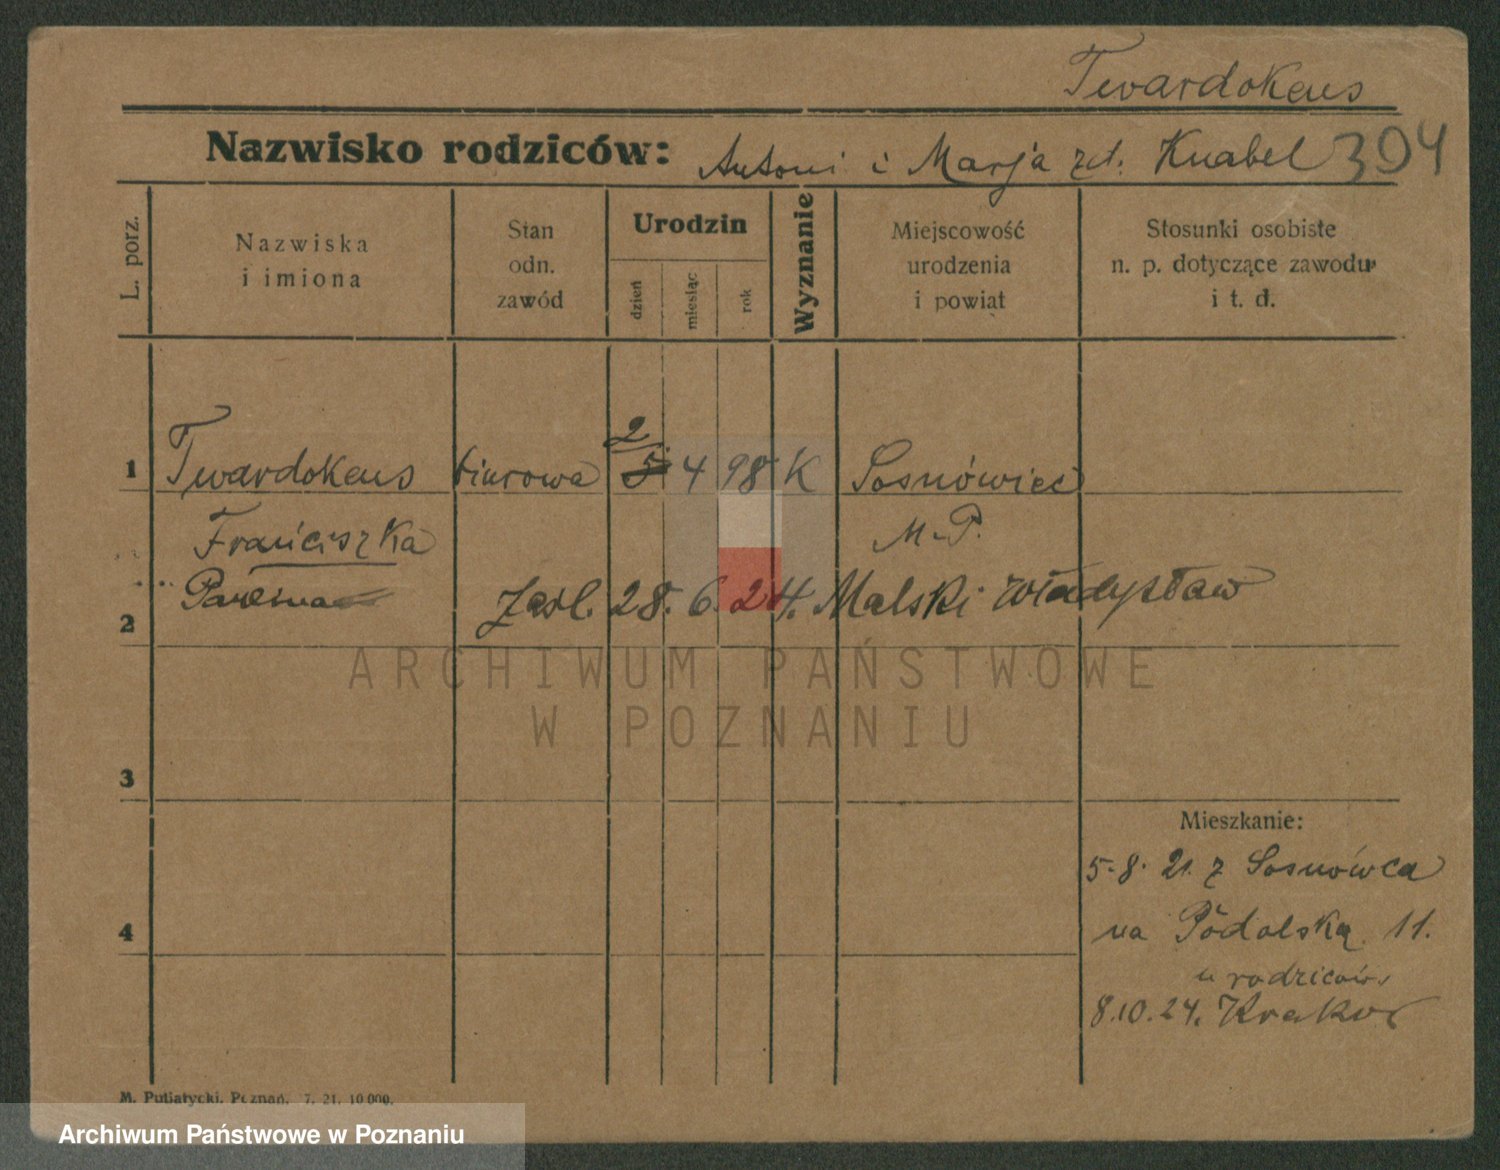 Twardokens
Nazwisko rodziców: Antoni i Marja zd. Knabel 394
L. porz.
Nazwiska i imiona
Stan odn. zawód
Urodzin
dzień
miesiąc
rok
Wyznanie
Miejscowość urodzenia i powiat
Stosunki osobiste n. p. dotyczące zawodu i t. d.
2/
1 Twardokens biurowa 5 4 98 K Sosnówiec
Franciszka M. P.
2 Zaśl. 28. 6. 24. Malski Władysław
ARCHIWUM PAŃSTWOWE
W POZNANIU
3
Mieszkanie:
5. 8. 21. z Sosnówca
4 na Podolską 11.
u rodziców.
8.10.24. Krakow
M. Putiatycki, Poznań. 7. 21. 10 000.
Archiwum Państwowe w Poznaniu